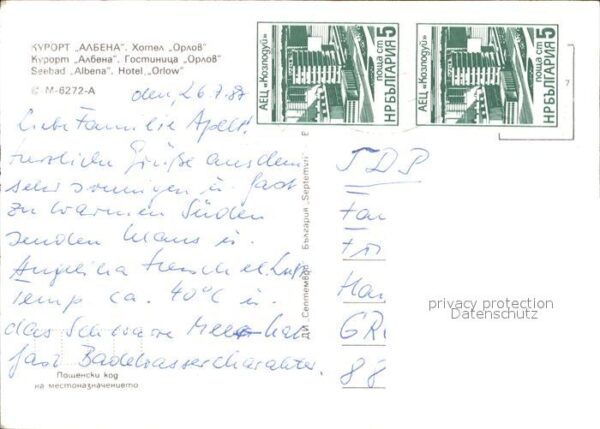 КУРОРТ „АЛБЕНА". Хотел „Орлов"
Курорт „Албена". Гостиница „Орлов"
Seebad „Albena". Hotel „Orlow"
© М-6272-А
den, 26.7.87
Liebe Familie Apelt!
herzliche Grüße aus dem
sehr sonnigen u. fast
zu warmen Süden
senden Klaus u.
Angelika Luft
Temp ca. 40°C u.
das Schwarze Meer hat
fast Badewassercharakter.
Пощенски код
на местоназначението
ДИ „Септември" България „Septemvri"
АЕЦ «Козлодуй»
поща ст 5
НР БЪЛГАРИЯ
АЕЦ «Козлодуй»
поща ст 5
НР БЪЛГАРИЯ
7
Fa
Ha
GR
88
privacy protection
Datenschutz